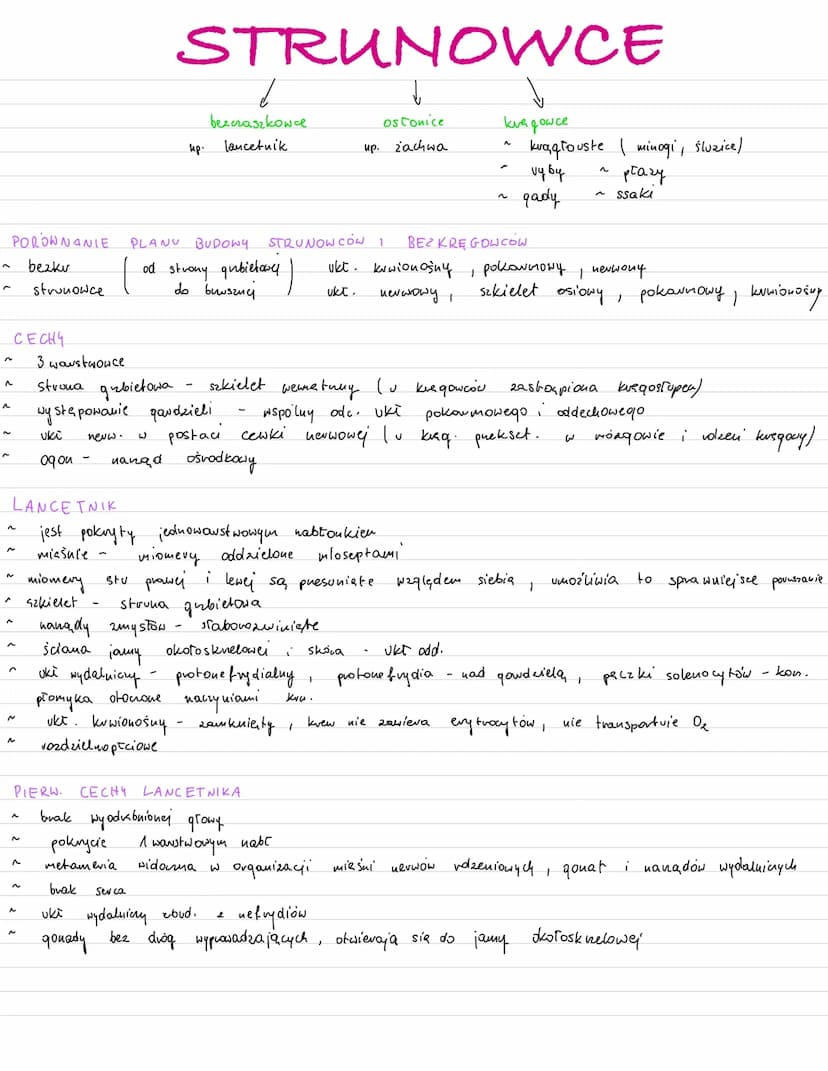 STRUNOWCE
bezczaszkowce osłonice kręgowce
np. lancetnik np. żachwa ~ krągłouste ( minogi, śluzice)
~ ryby ~ płazy
~ gady ~ ssaki
PORÓWNANIE PLANU BUDOWY STRUNOWCÓW I BEZKRĘGOWCÓW
~ bezkr ( od strony grzbietowej ) ukł. krwionośny , pokarmowy , nerwowy
~ strunowce ( do brusznej ) ukł. nerwowy , szkielet osiowy , pokarmowy , krwionośny
CECHY
~ 3 warstwowce
~ struna grzbietowa - szkielet wewnętrzny (u kręgowców zastąpiona kręgosłupem)
~ występowanie gardzieli - wspólny odc. ukł pokarmowego i oddechowego
~ ukł nerw. w postaci cewki nerwowej (u kręg. przekszt. w mózgowie i rdzeń kręgowy)
~ ogon - narząd ośrodkowy
LANCETNIK
~ jest pokryty jednowarstwowym nabłonkiem
~ mięśnie - miomery oddzielone mioseptami
~ miomery str prawej i lewej są przesunięte względem siebie , umożliwia to sprawniejsze poruszanie
~ szkielet - struna grzbietowa
~ narządy zmysłów - słaborozwinięte
~ ściana jamy okołoskrzelowej i skóra - ukł odd.
~ ukł wydalniczy - protonefrydialny , protonefrydia - nad gardzielą , pęczki solenocytów - kom.
płomyka otoczone naczyniami krw.
~ ukł. krwionośny - zamknięty , krew nie zawiera erytrocytów , nie transportuje O₂
~ rozdzielnopłciowe
PIERW. CECHY LANCETNIKA
~ brak wyodrębnionej głowy
~ pokrycie 1 warstwowym nabł
~ metameria widoczna w organizacji mięśni nerwów rdzeniowych , gonat i narządów wydalniczych
~ brak serca
~ ukł wydalniczy zbud. z nefrydiów
~ gonady bez dróg wyprowadzających , otwierają się do jamy okołoskrzelowej